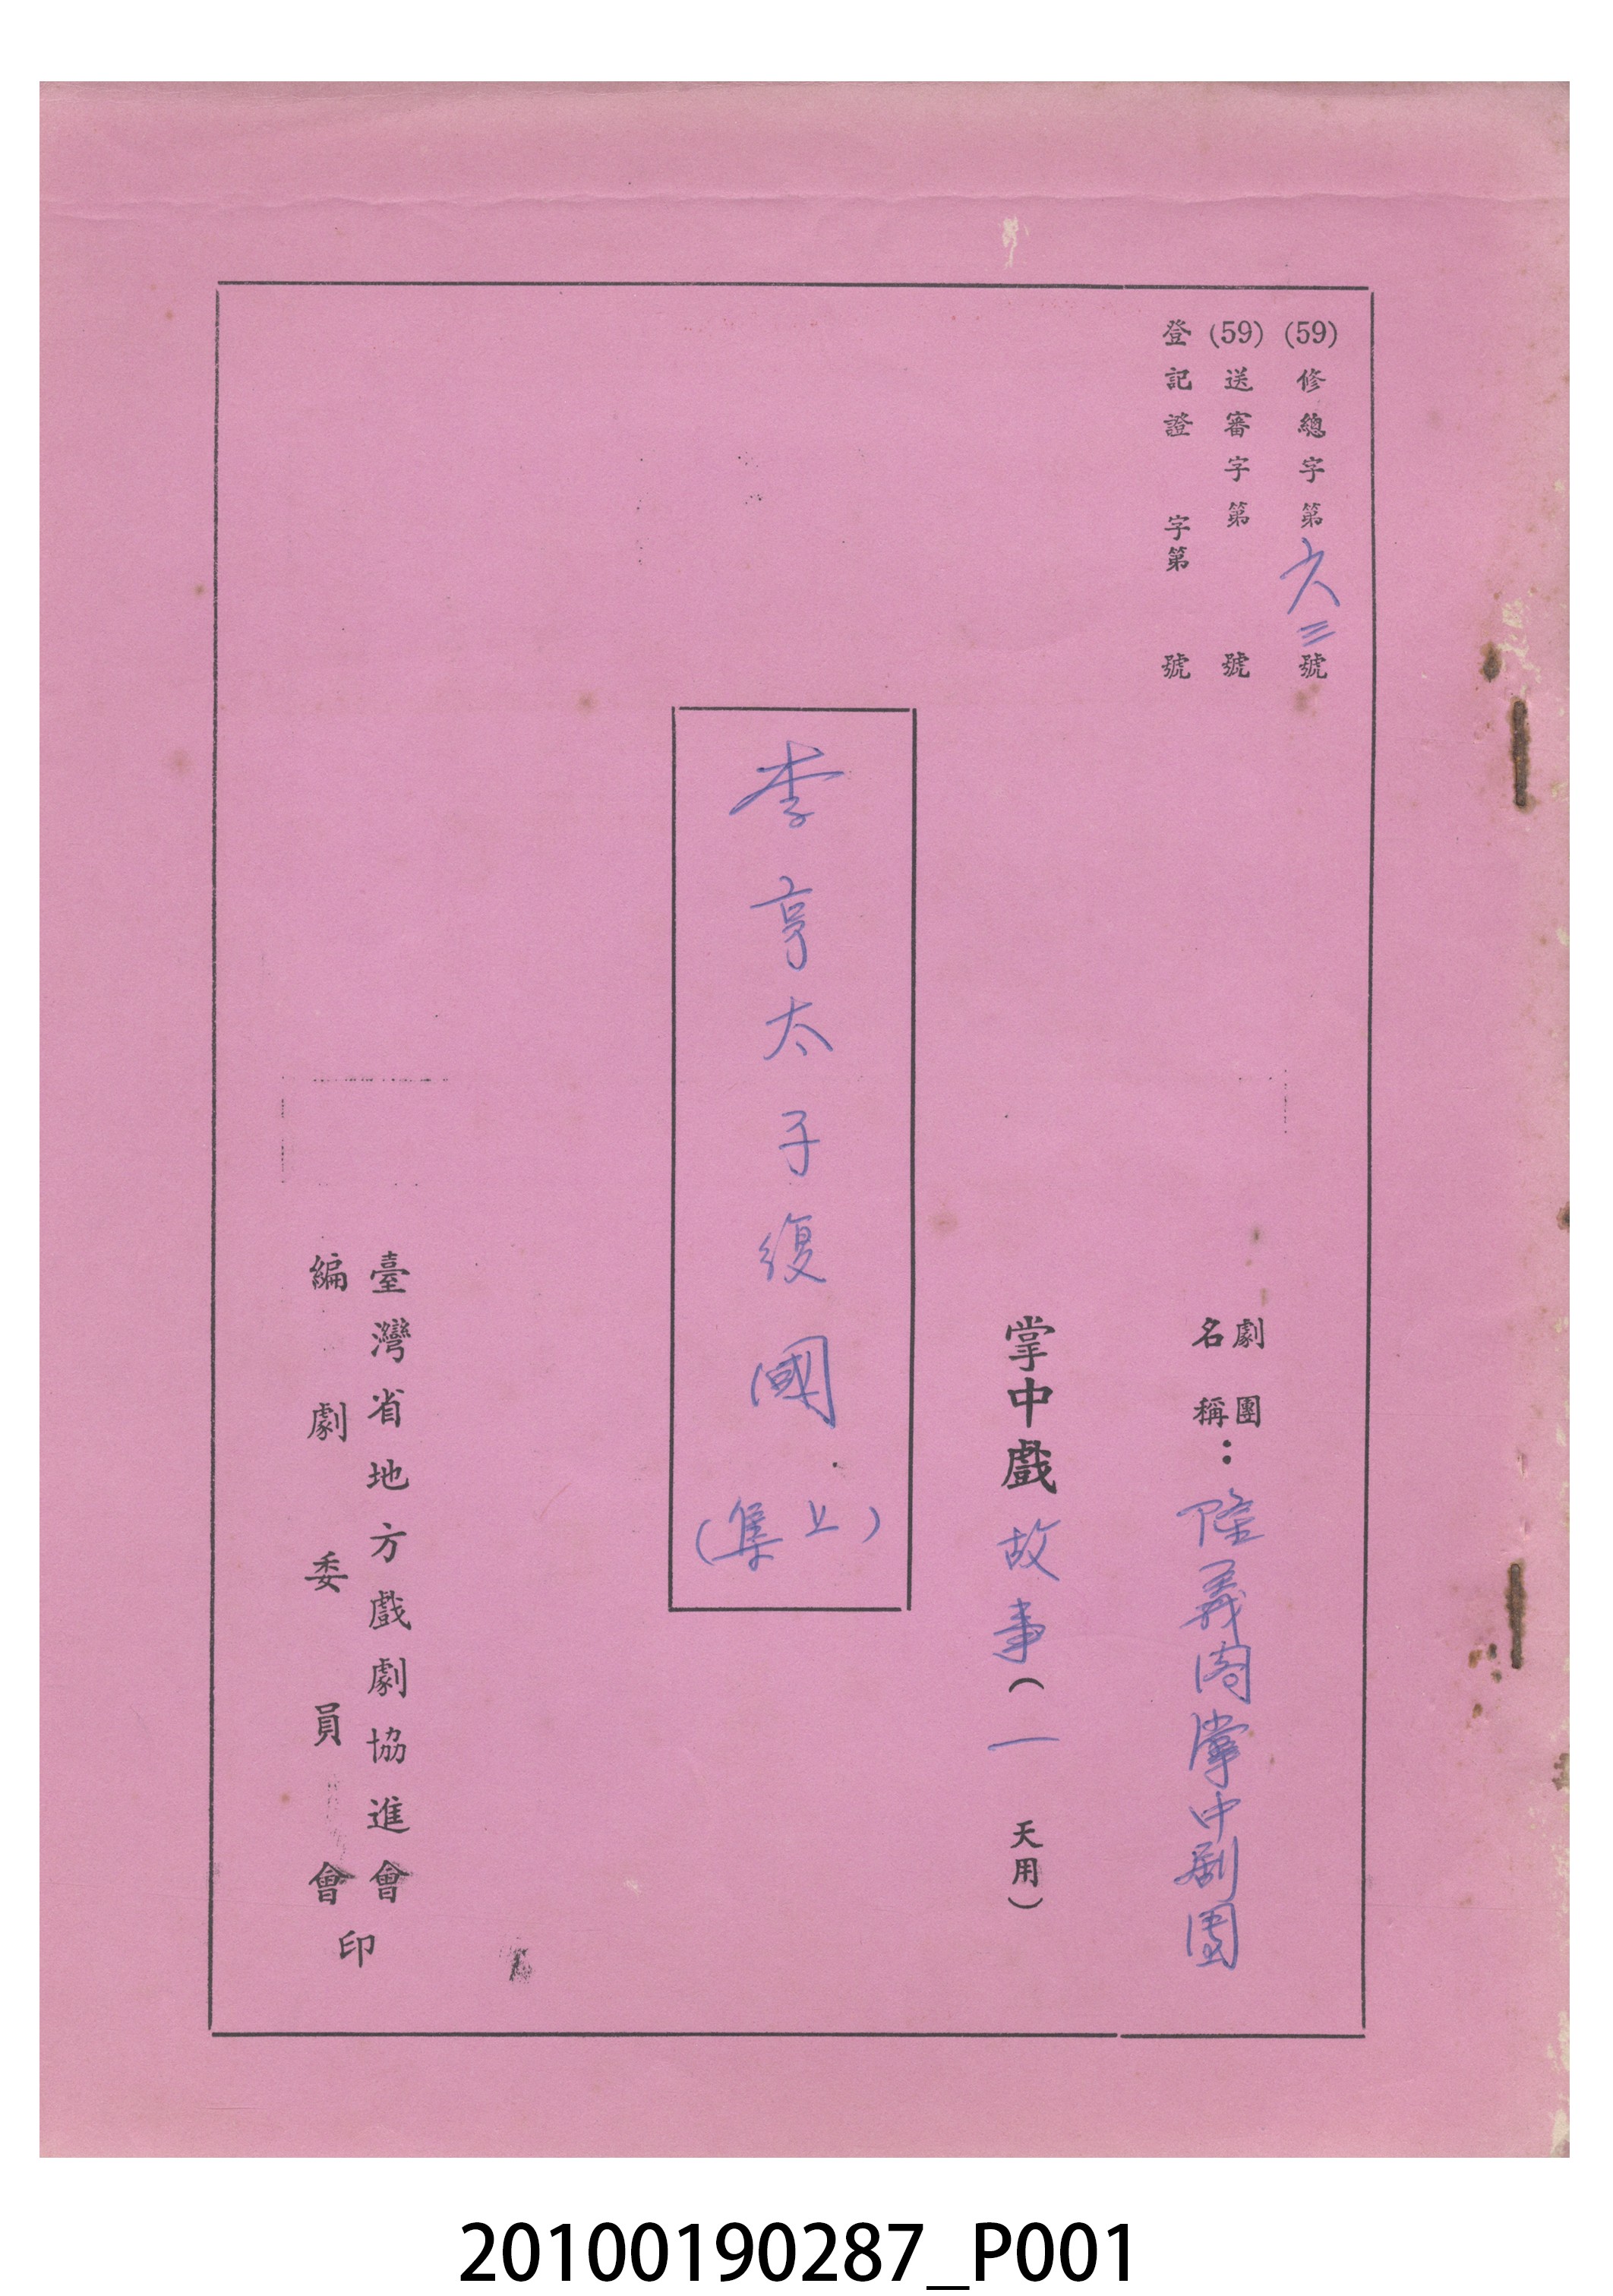 (59)修總字第六三號
(59)送審字第 號
登記證 字第 號
劇團名稱：隆義閣掌中劇團
掌中戲故事（一 天用）
李亨太子復國
（上集）
臺灣省地方戲劇協進會
編劇委員會
印
20100190287_P001